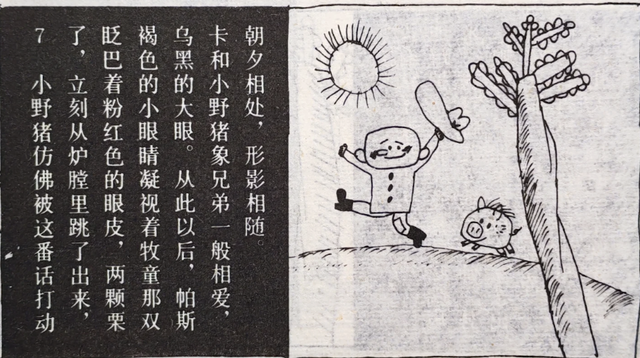 7 小野猪仿佛被这番话打动
了，立刻从炉膛里跳了出来，
眨巴着粉红色的眼皮，两颗栗
褐色的小眼睛凝视着牧童那双
乌黑的大眼。从此以后，帕斯
卡和小野猪象兄弟一般相爱，
朝夕相处，形影相随。